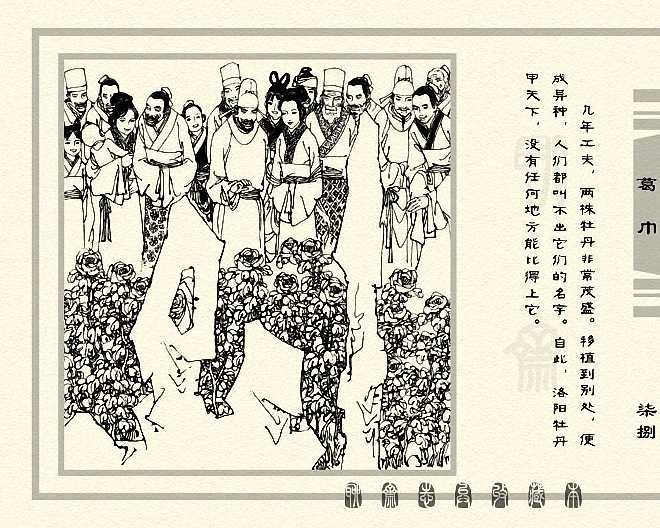 几年工夫，两株牡丹非常茂盛。移植到别处，便
成异种，人们都叫不出它们的名字。自此，洛阳牡丹
甲天下，没有任何地方能比得上它。
葛巾
柒捌